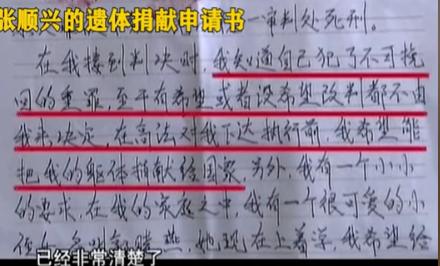 张顺兴的遗体捐献申请书
一审判处死刑。
在我接到判决时,我知道自己犯了不可挽
回的重罪,至于有希望或者没希望改判都不由
我来决定,在高法对我下达执行前,我希望能
把我的躯体捐献给国家。另外,我有一个小小
的要求,在我的家庭之中,我有一个很可爱的小
她现在上着学,我希望给
已经非常清楚了